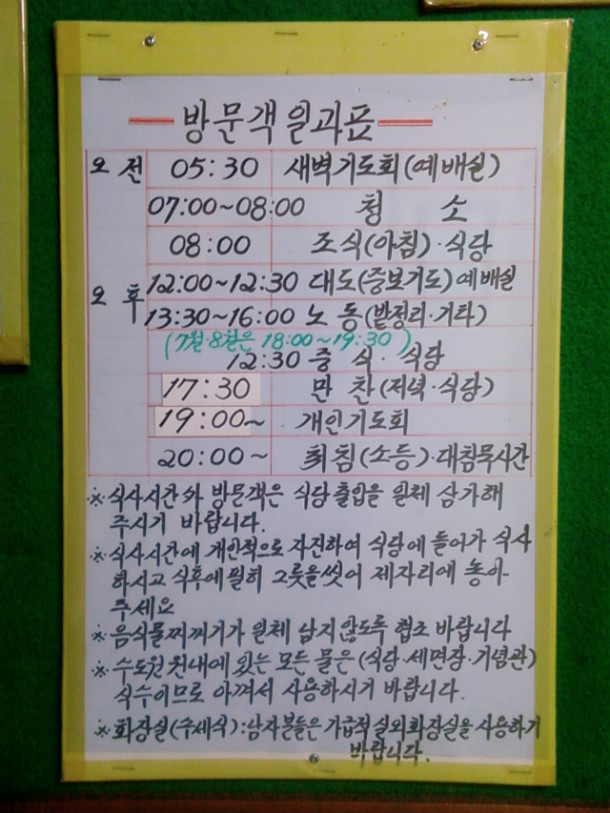 방문객 일과표
오 전 05:30 새벽기도회(예배실)
07:00~08:00 청 소
08:00 조식(아침)·식당
오 후 12:00~12:30 대도(중보기도)예배실
13:30~16:00 노 동(밭정리·기타)
(7월·8월은 18:00~19:30)
12:30 중 식· 식당
17:30 만 찬(저녁·식당)
19:00~ 개인기도회
20:00~ 취침(소등)·대침묵시간
※식사시간외 방문객은 식당출입을 일체 삼가해
주시기 바랍니다.
※식사시간에 개인적으로 자진하여 식당에 들어가 식사
하시고 식후에 필히 그릇을 씻어 제자리에 놓아
주세요
※음식물찌꺼기가 일체 남지않도록 협조 바랍니다
※수도원 원내에 있는 모든 물은(식당·세면장·기념관)
식수이므로 아껴서 사용하시기 바랍니다.
※화장실(수세식):남자분들은 가급적 실외화장실을 사용하기
바랍니다.